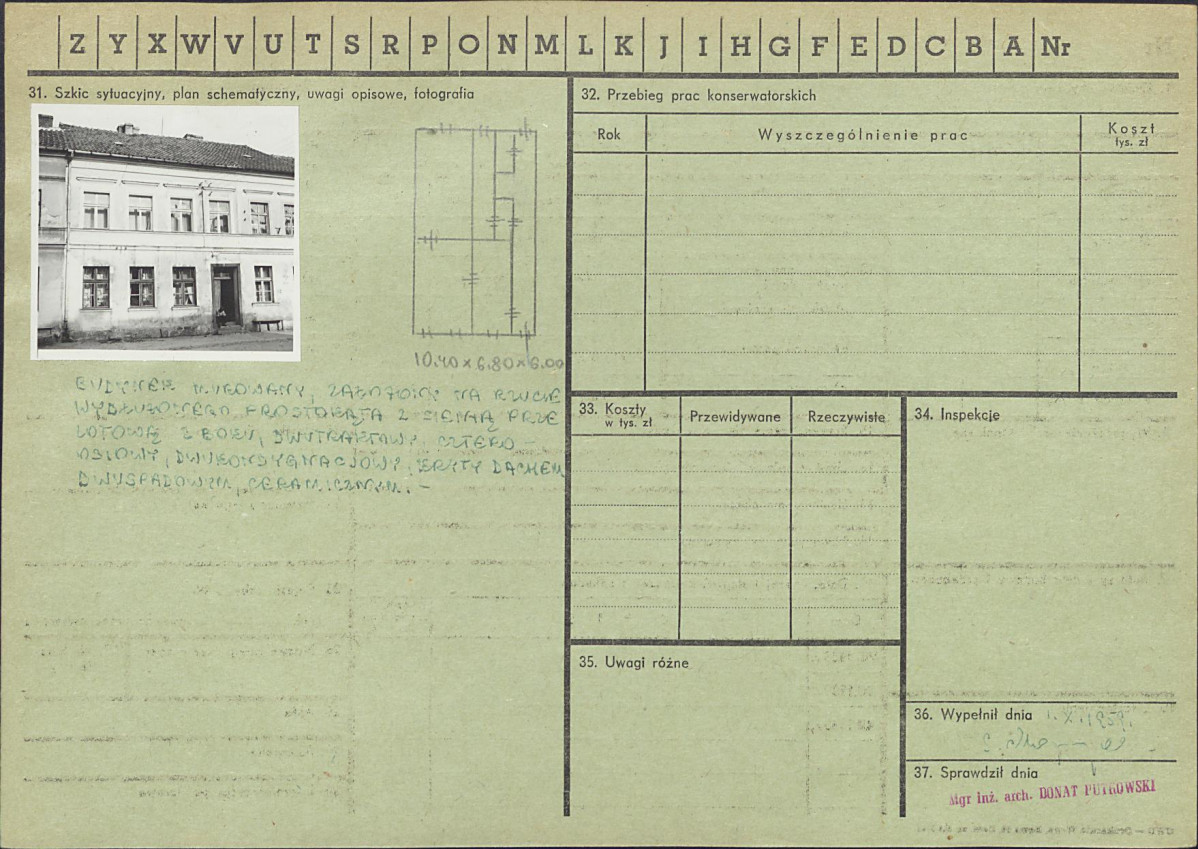 Z Y X W V U T S R P O N M L K J I H G F E D C B A Nr
31. Szkic sytuacyjny, plan schematyczny, uwagi opisowe, fotografia
10.40 x 6.80 x 6.00
BUDYNEK MUROWANY, ZAŁOŻONY NA RZUCIE
WYDŁUŻONEGO PROSTOKĄTA Z SIENIĄ PRZE
LOTOWĄ Z BOKU, DWUTRAKTOWY, CZTERO -
OSIOWY, DWUKONDYGNACJOWY. KRYTY DACHEM
DWUSPADOWYM, CERAMICZNYM. -
32. Przebieg prac konserwatorskich
Rok
Wyszczególnienie prac
Koszt
tys. zł
33. Koszty
w tys. zł
Przewidywane
Rzeczywiste
34. Inspekcje
35. Uwagi różne
36. Wypełnił dnia 1. XI. 1959.
37. Sprawdził dnia
Mgr inż. arch. DONAT PUTKOWSKI